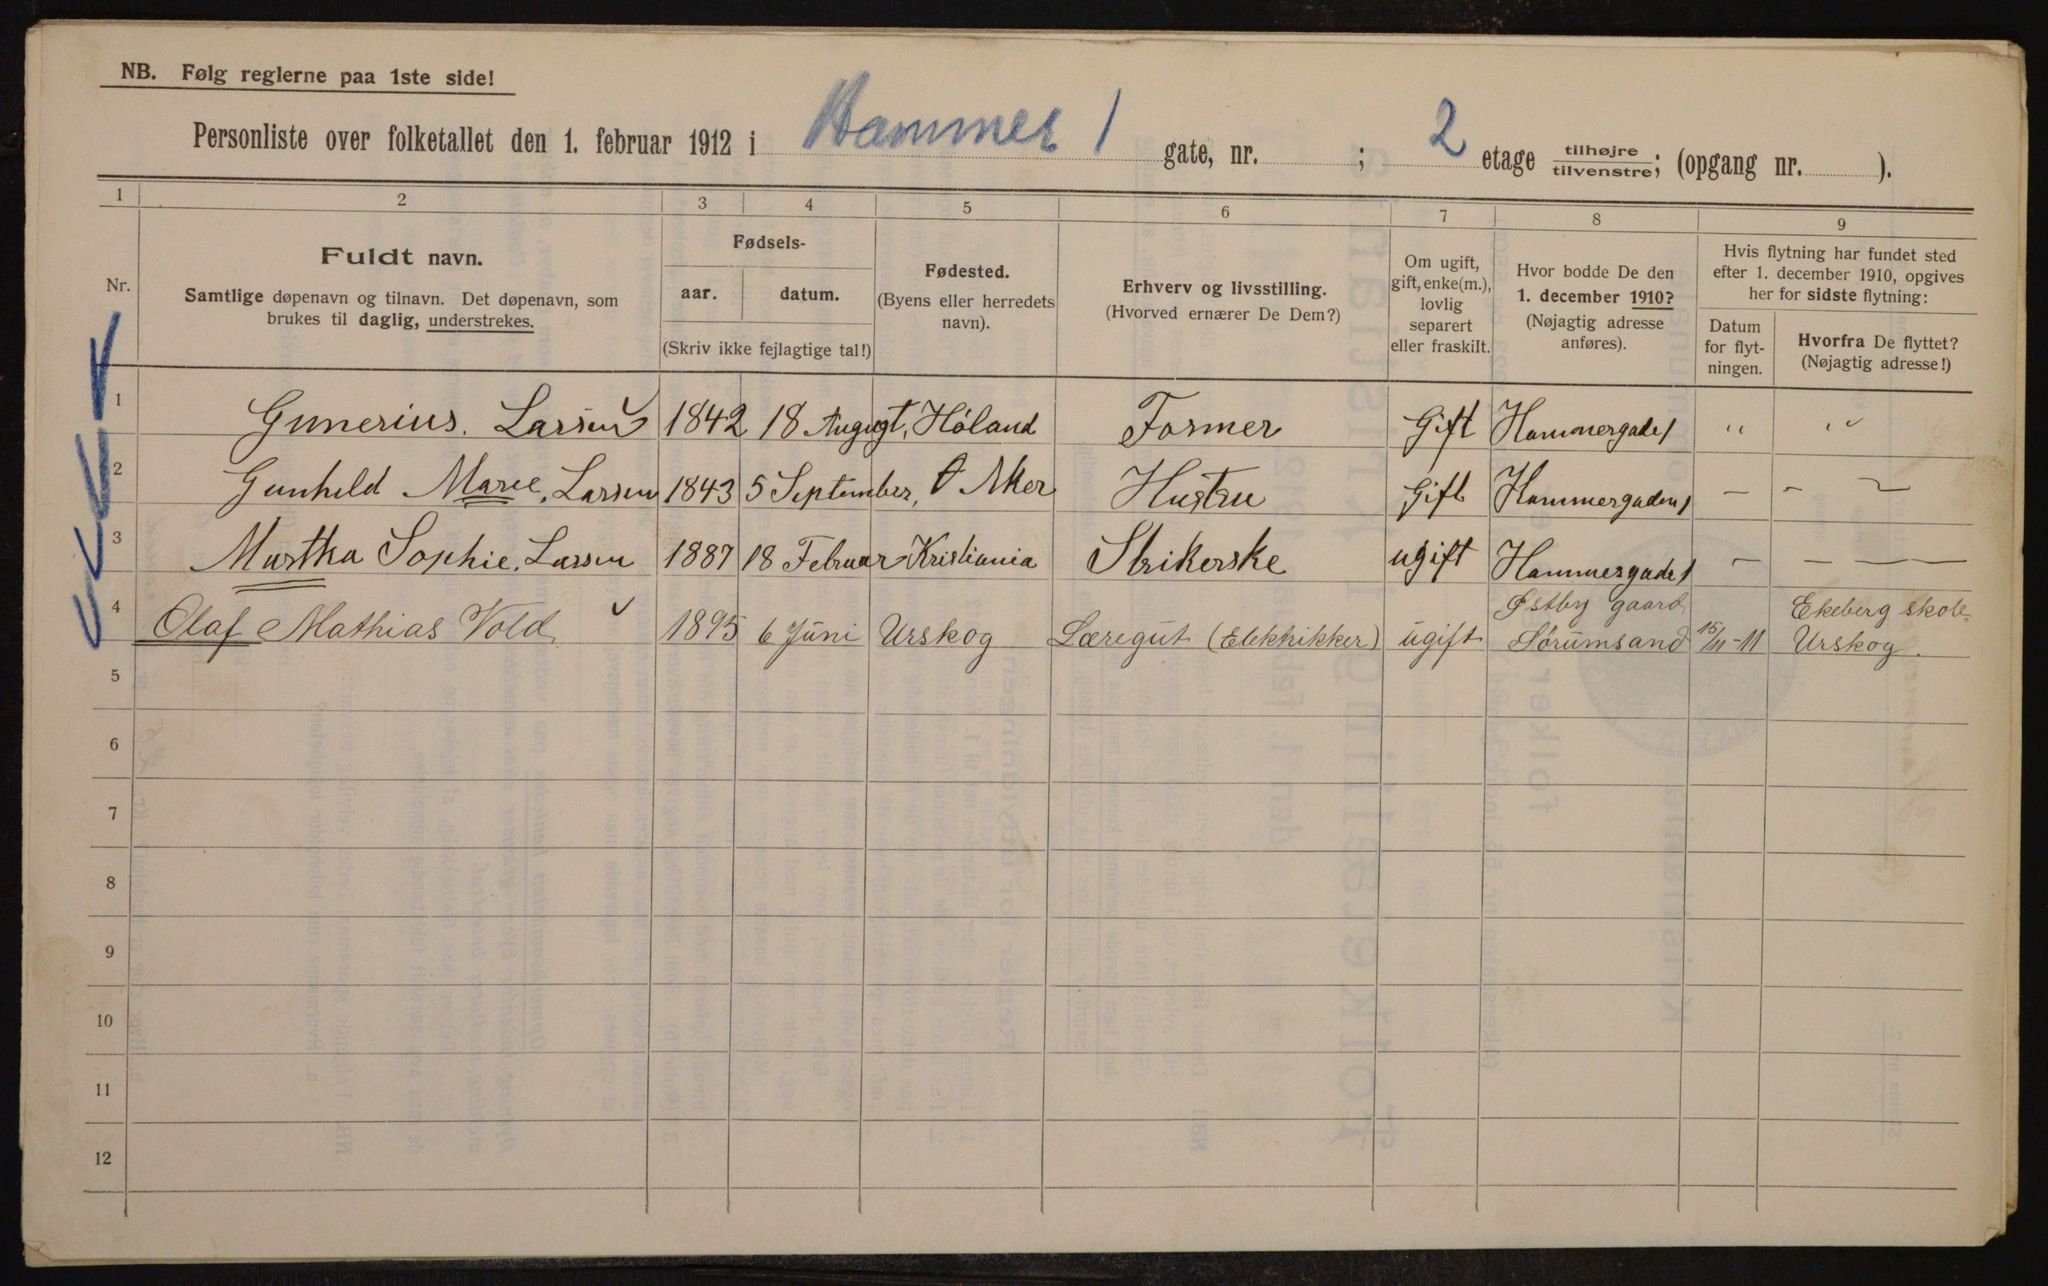 NB. Følg reglerne paa 1ste side!
Personliste over folketallet den 1. februar 1912 i Hammer 1 gate, nr. ; 2 etage tilhøjre tilvenstre; (opgang nr. ).
1 2 3 4 5 6 7 8 9
Nr.
Fuldt navn.
Samtlige døpenavn og tilnavn. Det døpenavn, som
brukes til daglig, understrekes.
Fødsels-
aar. datum.
(Skriv ikke fejlagtige tal!)
Fødested.
(Byens eller herredets
navn).
Erhverv og livsstilling.
(Hvorved ernærer De Dem?)
Om ugift,
gift, enke(m.),
lovlig
separert
eller fraskilt.
Hvor bodde De den
1. december 1910?
(Nøjagtig adresse
anføres).
Hvis flytning har fundet sted
efter 1. december 1910, opgives
her for sidste flytning:
Datum
for flyt-
ningen.
Hvorfra De flyttet?
(Nøjagtig adresse!)
1 Gunerius. Larsen 1842 18 August, Höland Former Gift Hammergade 1 " "
2 Gunhild Marie, Larsen 1843 5 September, Aker Hustru Gift Hammergaden 1 — – —
3 Martha Sophie. Larsen 1887 18 Februar Kristiania Strikerske ugift Hammergade 1 — — — —
4 Olaf Mathias Vold 1895 6 Juni Urskog Læregut (Elektrikker) ugift Østby gaard Sørumsand 15/11-11 Ekeberg skole Urskog.
5
6
7
8
9
10
11
12